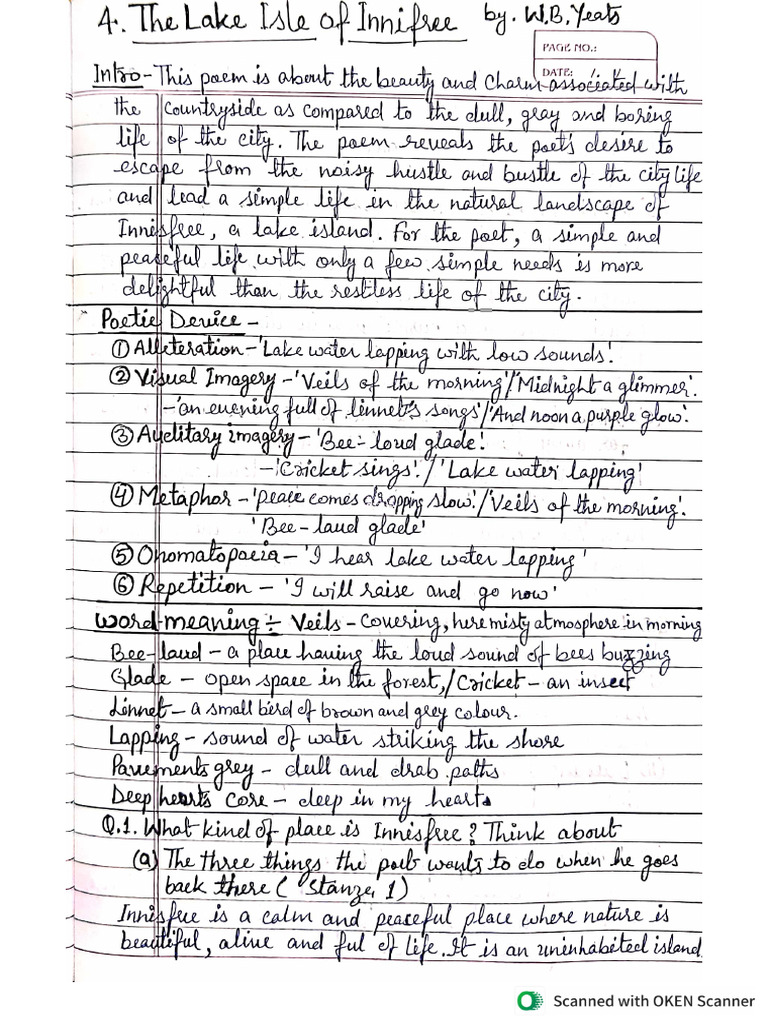 4. The Lake Isle of Innifree by. W.B. Yeats
PAGE NO.:
DATE: / /
Intro - This poem is about the beauty and Charm associated with
the countryside as compared to the dull, gray and boring
life of the city. The poem reveals the poet's desire to
escape from the noisy hustle and bustle of the city life
and lead a simple life in the natural landscape of
Innisfree, a lake island. For the poet, a simple and
peaceful life with only a few simple needs is more
delightful than the restless life of the city.
Poetic Device -
① Alleteration - 'Lake water lapping with low sounds'.
② Visual Imagery - 'Veils of the morning' / 'Midnight a glimmer'.
- 'an evening full of linnet's songs' / 'And noon a purple glow'.
③ Auditary imagery - 'Bee-loud glade'.
- 'Cricket sings'. / 'Lake water lapping'
④ Metaphor - 'peace comes dropping slow'. / 'Veils of the morning'.
'Bee-laud glade'
⑤ Onomatopoeia - 'I hear lake water lapping'
⑥ Repetition - 'I will raise and go now'
Word-meaning ÷ Veils - Covering, here misty atmosphere in morning
Bee-laud - a place having the loud sound of bees buzzing
Glade - open space in the forest, / Cricket - an insect
Linnet - a small bird of brown and grey colour.
Lapping - sound of water striking the shore
Pavements grey - dull and drab paths
Deep hearts core - deep in my heart.
Q.1. What kind of place is Innisfree? Think about
(a) The three things the poet wants to do when he goes
back there ( Stanza 1)
Innisfree is a calm and peaceful place where nature is
beautiful, alive and ful of life. It is an uninhabited island
Scanned with OKEN Scanner